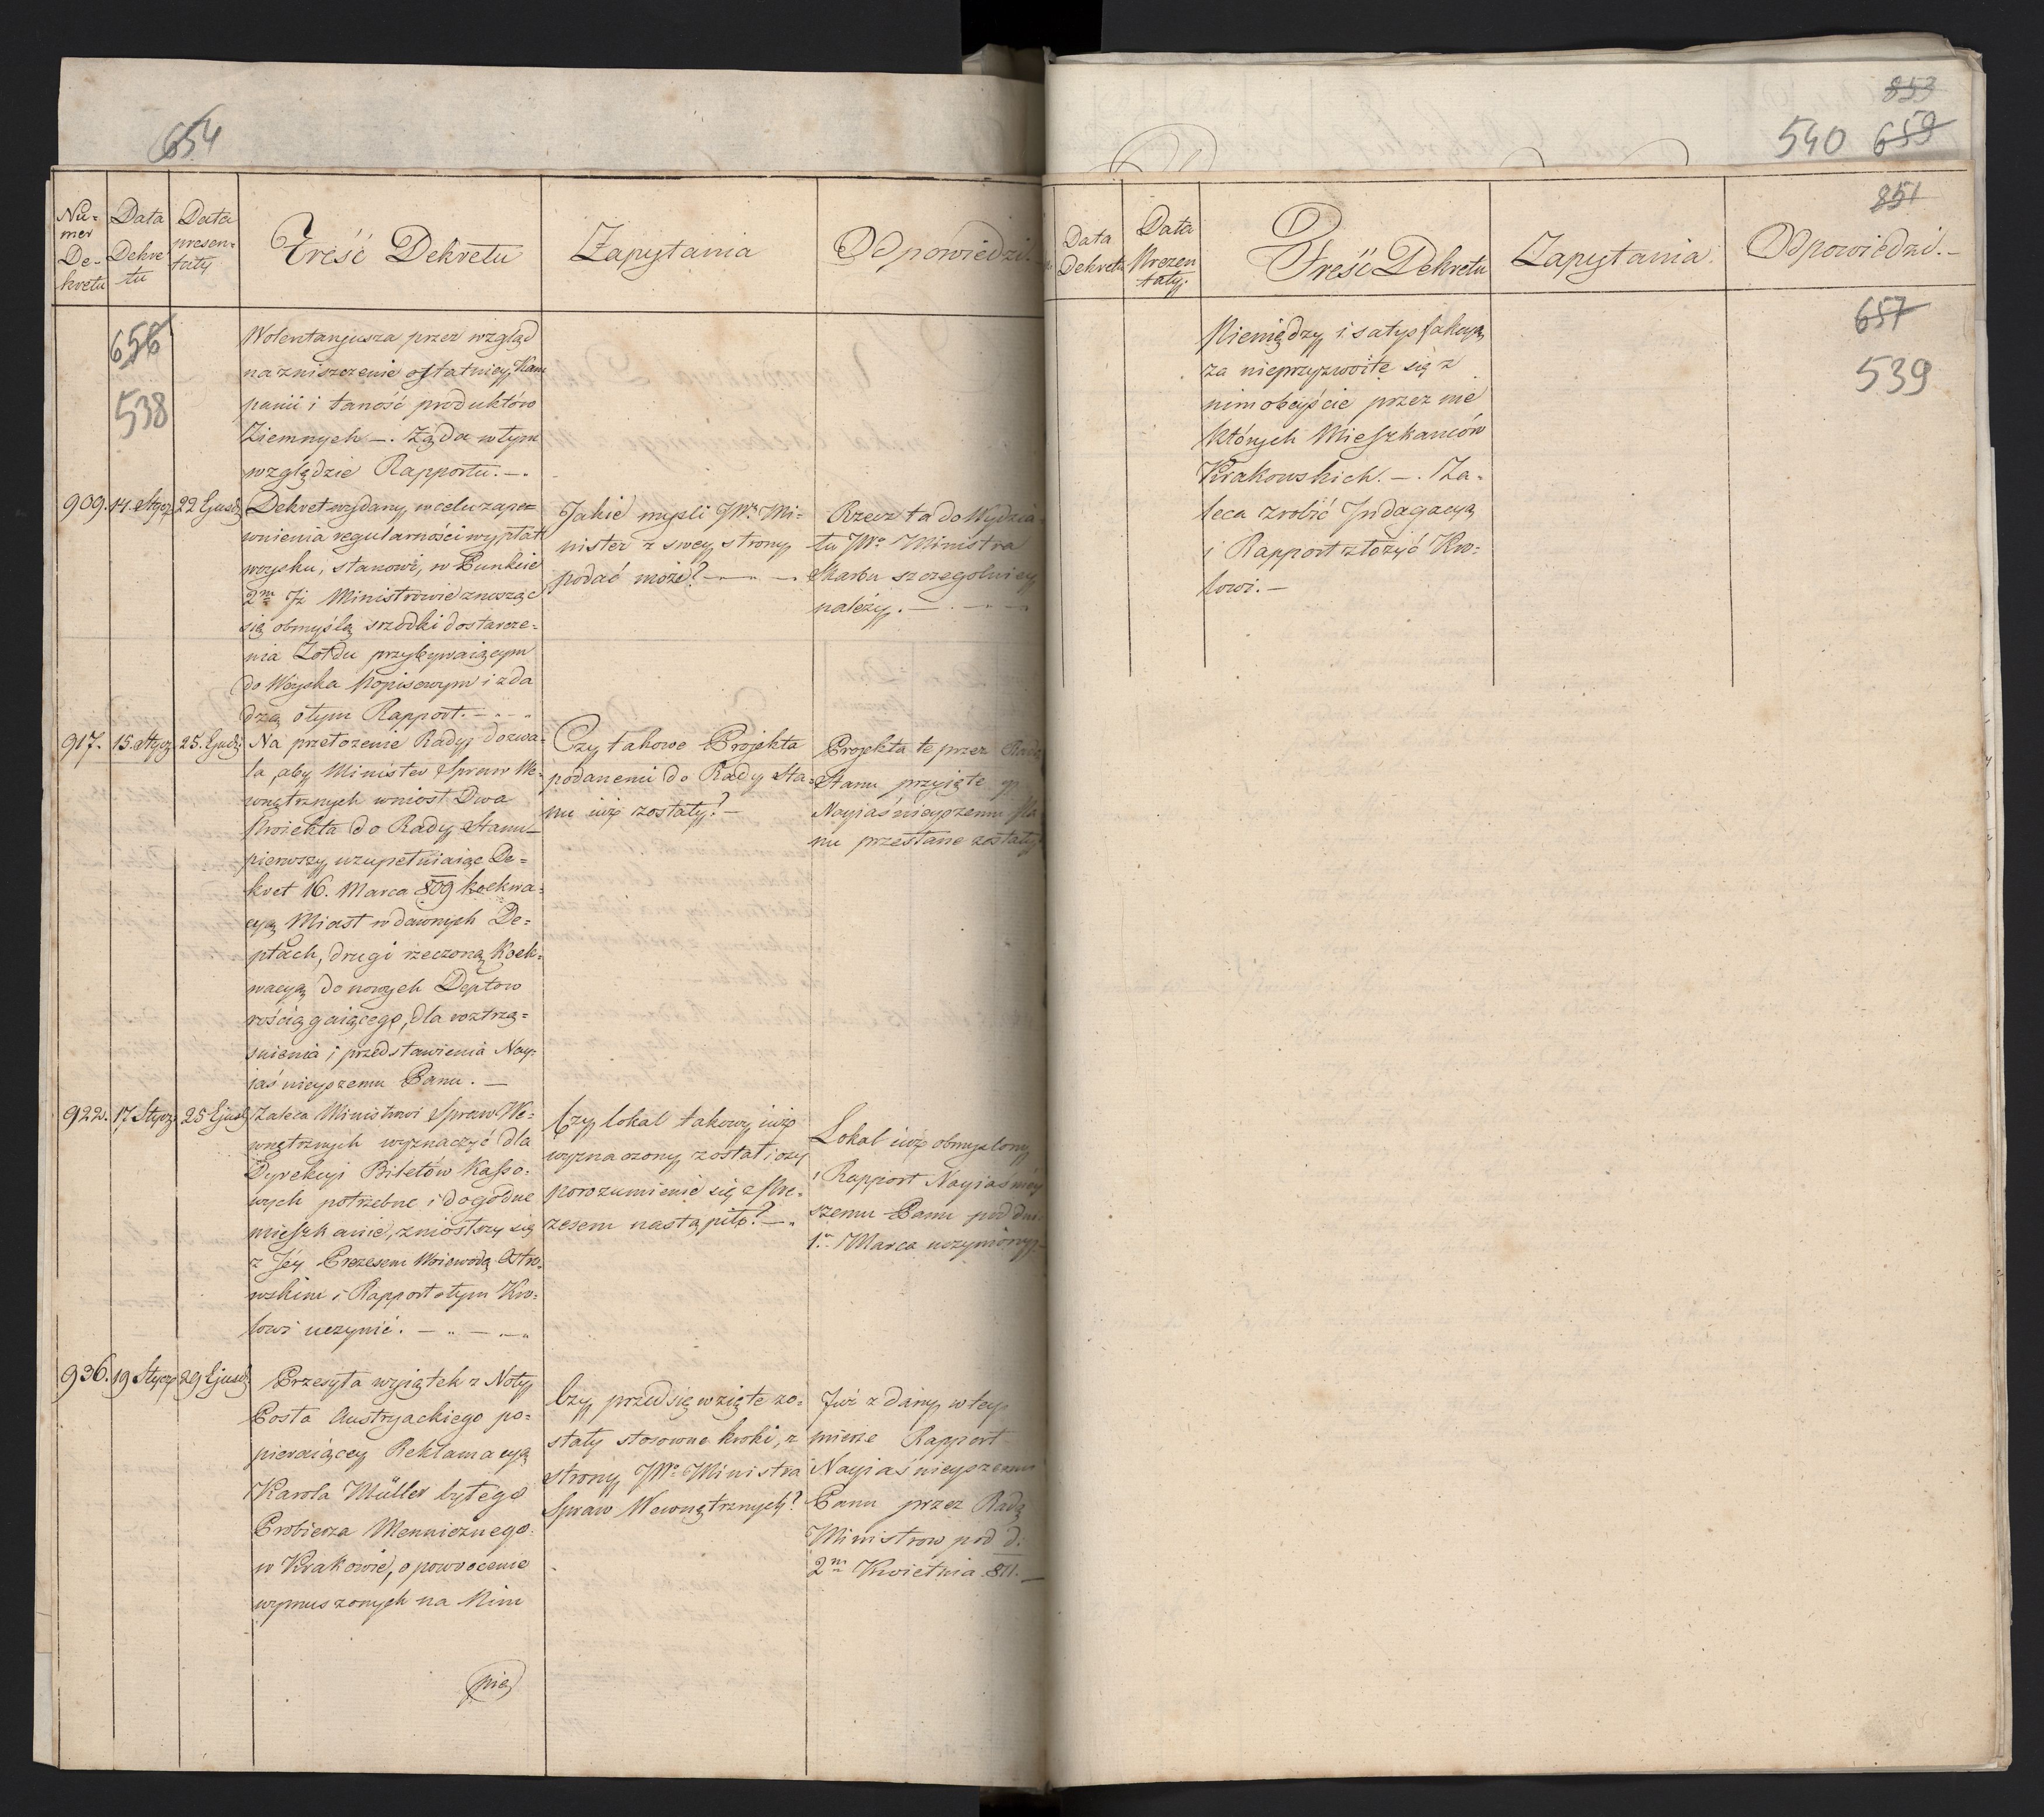 654
Nu=
mer
De-
kretu
Data
Dekre
tu
Data
presen=
taty
Treść Dekretu
Zapytania
Odpowiedzi.
656
538
Wolentaryusza przez wzgląd
na zniszczenie ostatniey Kam
panii i taność produktów
Ziemnych —. Żąda w tym
względzie Rapportu. —.
909. 14. Stycz 22 Ejusd
Dekret wydany w celu zape
wnienia regularności wypłat
woysku, stanowi, w Punkcie
2m Iż Ministrowie znosząc
się obmyślą srzodki dostarcze=
nia Żołdu przybywaiącym
do Woyska Popisowym i zda
dzą o tym Rapport. —
Jakie myśli JWny Mi=
nister z swey strony
podać może? —
Rzecz ta do Wydzia=
łu JWo Ministra
Skarbu szczegolniey
należy. —
917. 15. Stycz 25. Ejusd
Na przełożenie Rady dozwa=
la, aby Minister Spraw We=
wnętrznych wniosł Dwa
Proiekta do Rady Stanu —
pierwszy uzupełniaiąc De=
kret 16. Marca 809 koekwa=
cyą Miast w dawnych De=
ptach, drugi rzeczoną Koek=
wacyą do nowych Deptow
rościągaiącego, dla roztrzą=
snienia i przedstawienia Nay=
iaśnieyszemu Panu. —
Czy takowe Projekta
podanemi do Rady Sta=
nu iuż zostały? —
Projekta te przez Radę
Stanu przyięte
Nayiaśnieyszemu Pa
nu przesłane zostały
922. 17 Stycz 25 Ejusd
Zaleca Ministrowi Spraw We=
wnętrznych wyznaczyć dla
Dyrekcyi Biletów Kasso=
wych potrzebne i dogodne
mieszkanie, zniosłszy się
z Jéy Prezesem Woiewodą Ostro=
wskim i Rapport o tym Kro=
lowi uczynić. —
Czy lokal takowy iuż
wyznaczony został i czy
porozumienie się z Pre=
zesem nastąpiło? —
Lokal iuż obmyslony
i Rapport Nayiaśniey
szemu Panu pod dn.
1. Marca uczyniony —
936. 19 Stycz 29 Ejusd
Przesyła wyiątek z Noty
Posła Austryackiego po=
pieraiącey Reklamacyą
Karola Müller byłego
Probierza Menniczego
w Krakowie, o powrocenie
wymuszonych na Nim
Czy przedsięwzięte zo=
stały stosowne kroki, z
strony JWo Ministra
Spraw Wewnętrznych?
Już zdany w tey
mierze Rapport
Nayiaśnieyszemu
Panu przez Radę
Ministrow pod d.
2m Kwietnia 811. —
pie
853
540 659
851
Data
Dekretu
Data
Prezen
taty.
Treść Dekretu
Zapytania.
Odpowiedzi. —
657
539
Pieniędzy i satysfakcyą
za nieprzyzwoite się z
nim obeyście przez nie
których Mieszkańców
Krakowskich. —. Za=
leca zrobić Indagacyą
i Rapport złożyć Kro=
lowi. —